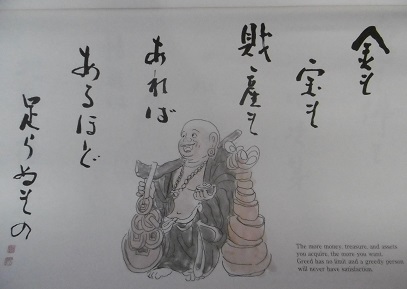 金も
宝も
財産も
あれば
あるほど
足らぬもの
The more money, treasure, and assets
you acquire, the more you want.
Greed has no limit and a greedy person
will never have satisfaction.